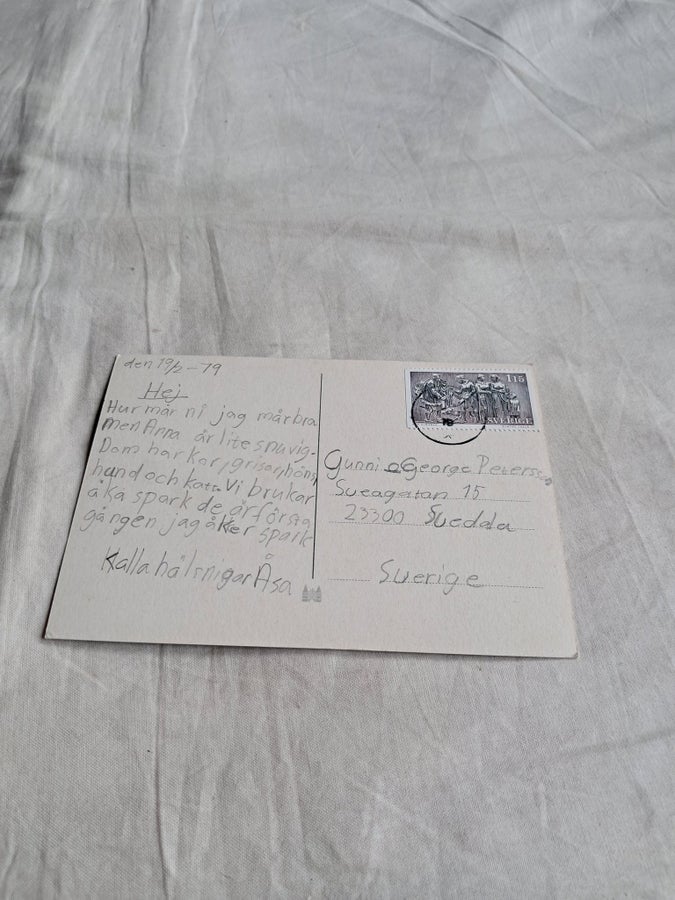 den 19/2-79
Hej
Hur mår ni jag mår bra
men Anna är lite snuvig.
Dom har kor, grisar, höns,
hund och katt. Vi brukar
åka spark de är första
gången jag åker spark
Kalla hälsnigar Åsa
115
SVERIGE
Gunni o George Peterss
Sveagatan 15
23300 Svedda
Sverige